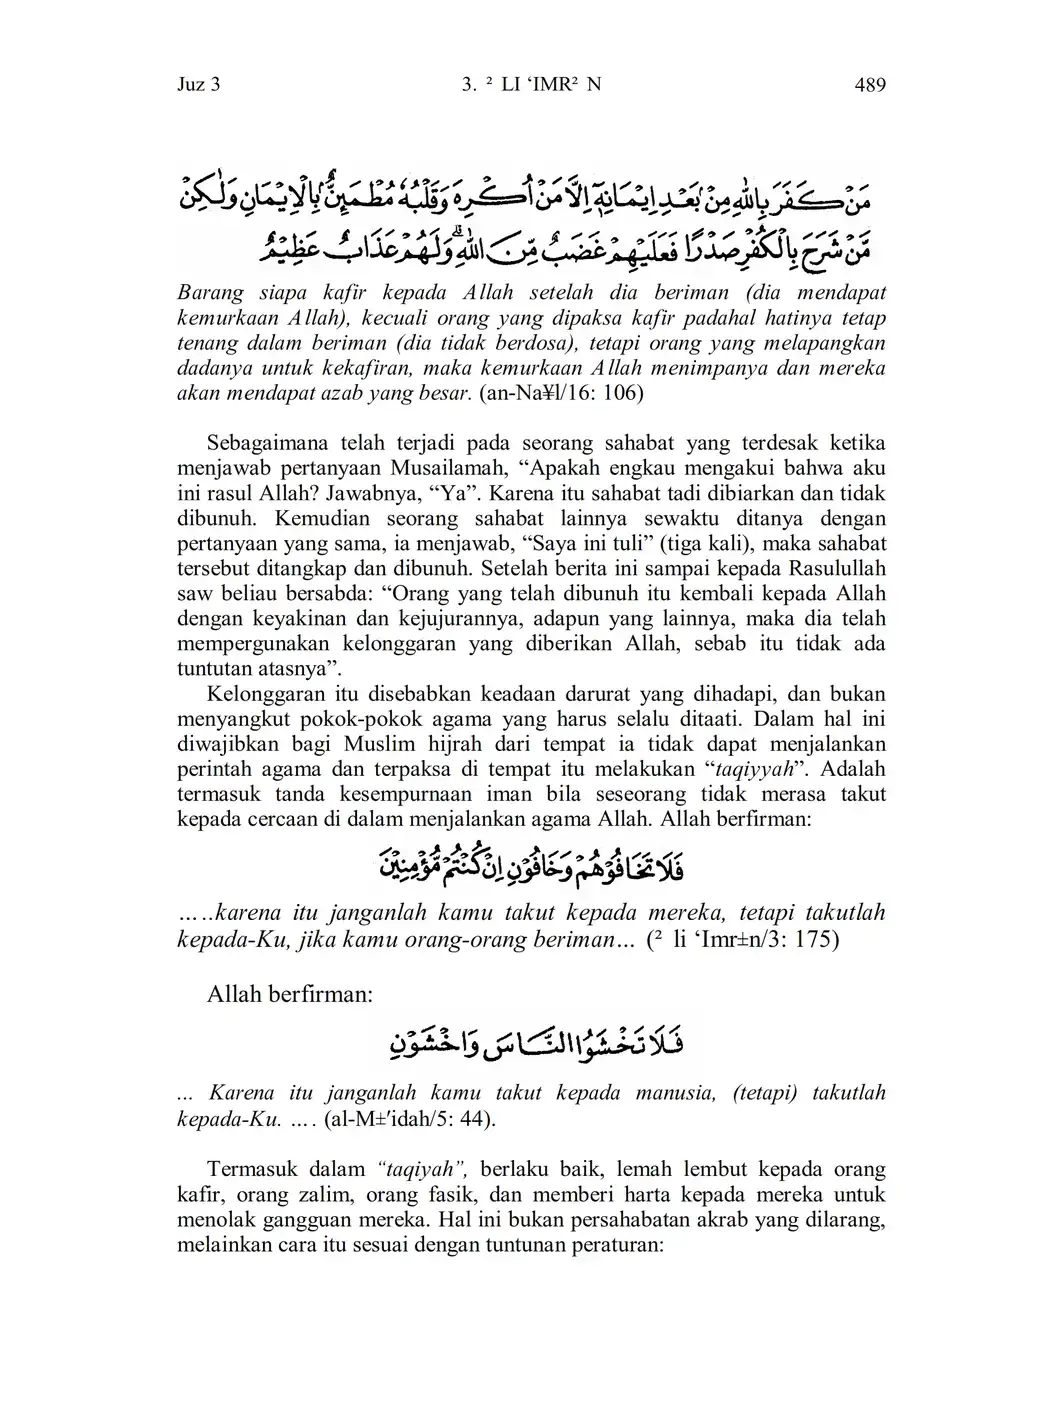 Juz 3 3. ² LI ‘IMR² N 489
مَنْ كَفَرَ بِاللّٰهِ مِنْۢ بَعْدِ اِيْمَانِهٖٓ اِلَّا مَنْ اُكْرِهَ وَقَلْبُهٗ مُطْمَىِٕنٌّۢ بِالْاِيْمَانِ وَلٰكِنْ
مَّنْ شَرَحَ بِالْكُفْرِ صَدْرًا فَعَلَيْهِمْ غَضَبٌ مِّنَ اللّٰهِ ۗوَلَهُمْ عَذَابٌ عَظِيْمٌ
Barang siapa kafir kepada Allah setelah dia beriman (dia mendapat
kemurkaan Allah), kecuali orang yang dipaksa kafir padahal hatinya tetap
tenang dalam beriman (dia tidak berdosa), tetapi orang yang melapangkan
dadanya untuk kekafiran, maka kemurkaan Allah menimpanya dan mereka
akan mendapat azab yang besar. (an-Na¥l/16: 106)
Sebagaimana telah terjadi pada seorang sahabat yang terdesak ketika
menjawab pertanyaan Musailamah, “Apakah engkau mengakui bahwa aku
ini rasul Allah? Jawabnya, “Ya”. Karena itu sahabat tadi dibiarkan dan tidak
dibunuh. Kemudian seorang sahabat lainnya sewaktu ditanya dengan
pertanyaan yang sama, ia menjawab, “Saya ini tuli” (tiga kali), maka sahabat
tersebut ditangkap dan dibunuh. Setelah berita ini sampai kepada Rasulullah
saw beliau bersabda: “Orang yang telah dibunuh itu kembali kepada Allah
dengan keyakinan dan kejujurannya, adapun yang lainnya, maka dia telah
mempergunakan kelonggaran yang diberikan Allah, sebab itu tidak ada
tuntutan atasnya”.
Kelonggaran itu disebabkan keadaan darurat yang dihadapi, dan bukan
menyangkut pokok-pokok agama yang harus selalu ditaati. Dalam hal ini
diwajibkan bagi Muslim hijrah dari tempat ia tidak dapat menjalankan
perintah agama dan terpaksa di tempat itu melakukan “taqiyyah”. Adalah
termasuk tanda kesempurnaan iman bila seseorang tidak merasa takut
kepada cercaan di dalam menjalankan agama Allah. Allah berfirman:
فَلَا تَخَافُوْهُمْ وَخَافُوْنِ اِنْ كُنْتُمْ مُّؤْمِنِيْنَ
…..karena itu janganlah kamu takut kepada mereka, tetapi takutlah
kepada-Ku, jika kamu orang-orang beriman… (² li ‘Imr±n/3: 175)
Allah berfirman:
فَلَا تَخْشَوُا النَّاسَ وَاخْشَوْنِ
... Karena itu janganlah kamu takut kepada manusia, (tetapi) takutlah
kepada-Ku. …. (al-M±′idah/5: 44).
Termasuk dalam “taqiyah”, berlaku baik, lemah lembut kepada orang
kafir, orang zalim, orang fasik, dan memberi harta kepada mereka untuk
menolak gangguan mereka. Hal ini bukan persahabatan akrab yang dilarang,
melainkan cara itu sesuai dengan tuntunan peraturan: